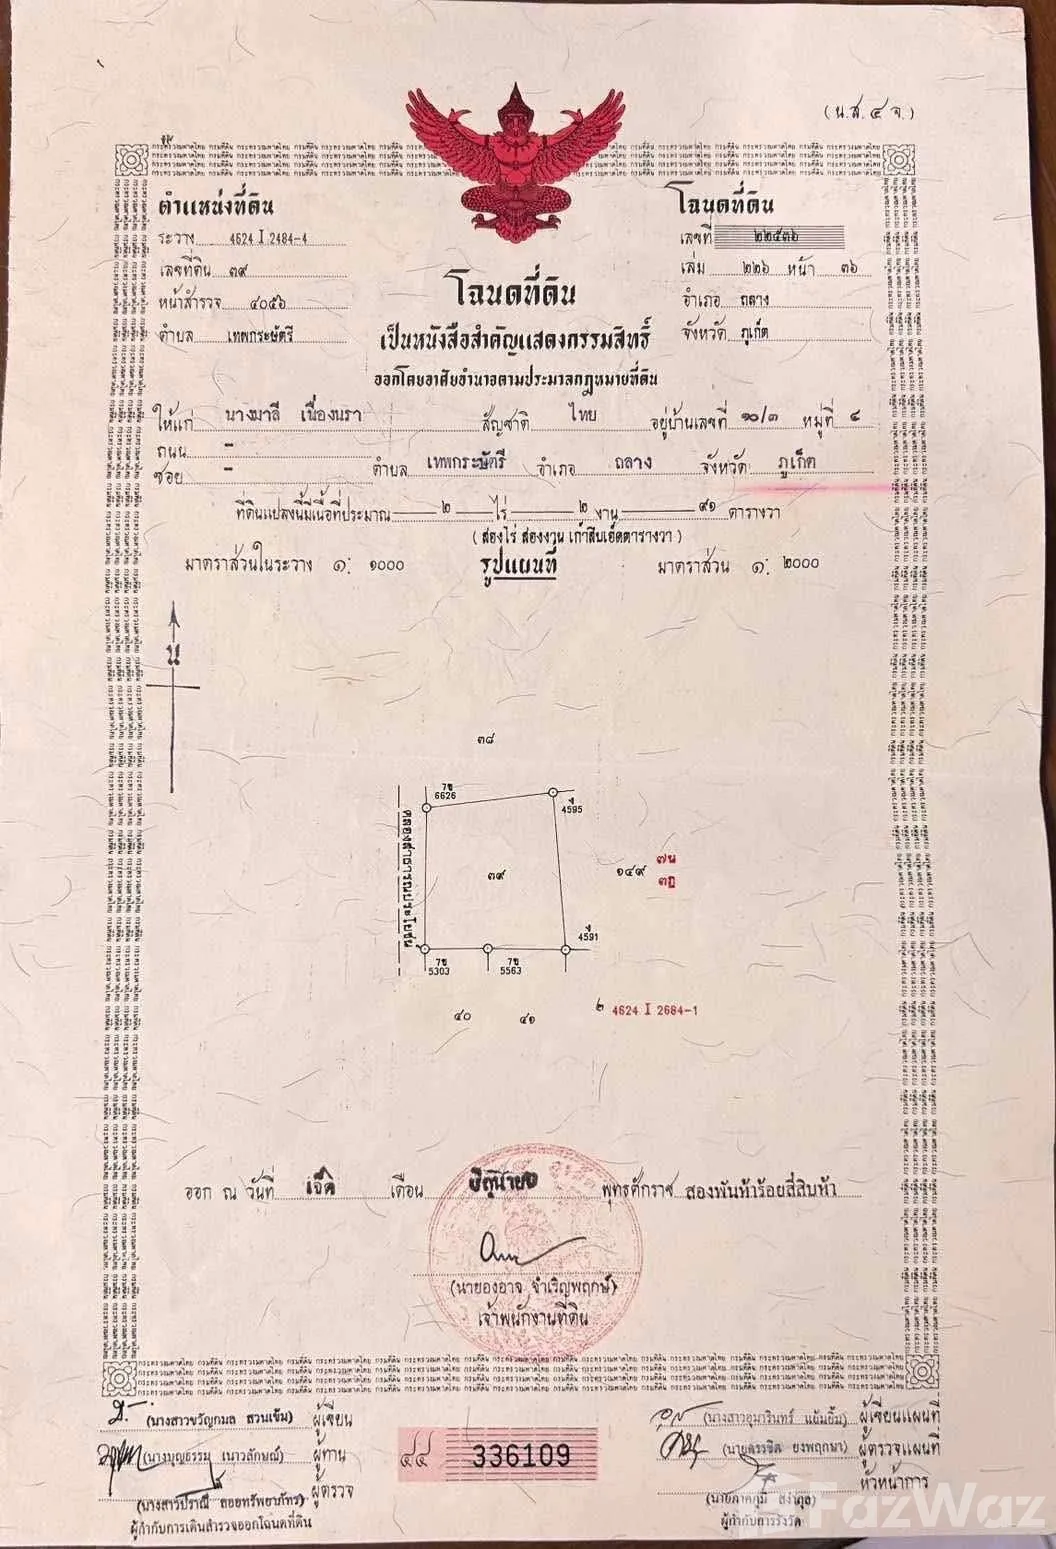 (น.ส.๔ จ.)
ตำแหน่งที่ดิน
ระวาง 4624 I 2484-4
เลขที่ดิน ๓๙
หน้าสำรวจ ๔๐๕๖
ตำบล เทพกระษัตรี
โฉนดที่ดิน
เลขที่ ๒๒๕๓๖
เล่ม ๒๒๖ หน้า ๓๖
อำเภอ ถลาง
จังหวัด ภูเก็ต
โฉนดที่ดิน
เป็นหนังสือสำคัญแสดงกรรมสิทธิ์
ออกโดยอาศัยอำนาจตามประมวลกฎหมายที่ดิน
ให้แก่ นางมาลี เนื่องนรา สัญชาติ ไทย อยู่บ้านเลขที่ ๑๐/๓ หมู่ที่ ๔
ถนน -
ซอย - ตำบล เทพกระษัตรี อำเภอ ถลาง จังหวัด ภูเก็ต
ที่ดินแปลงนี้มีเนื้อที่ประมาณ ๒ ไร่ ๒ งาน ๙๑ ตารางวา
(สองไร่ สองงาน เก้าสิบเอ็ดตารางวา)
มาตราส่วนในระวาง ๑: ๑๐๐๐ รูปแผนที่ มาตราส่วน ๑: ๒๐๐๐
น
๓๘
7ข
6626
4595
คลองสาธารณประโยชน์
๓๙
๑๔๙
4591
7ข
5303
7ข
5563
๔๐
๔๑
๒ 4624 I 2684-1
ออก ณ วันที่ เจ็ด เดือน มิถุนายน พุทธศักราช สองพันห้าร้อยสี่สิบห้า
(นายองอาจ จำเริญพฤกษ์)
เจ้าพนักงานที่ดิน
(นางสาวขวัญกมล สวนเข็ม) ผู้เขียน
(นางบุญธรรม เนาวลักษณ์) ผู้ทาน
ผู้ตรวจ
(นางสาวปราณี ลออทรัพยาภัทร)
ผู้กำกับการเดินสำรวจออกโฉนดที่ดิน
๔๔ 336109
(นางสาวอุมารินทร์ แย้มยิ้ม) ผู้เขียนแผนที่
ผู้ตรวจแผนที่
หัวหน้าการ
ผู้กำกับการรังวัด
FazWaz